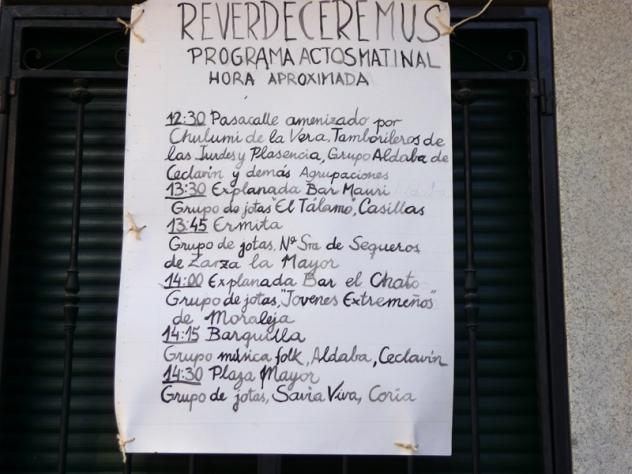 REVERDECEREMUS
PROGRAMA ACTOS MATINAL
HORA APROXIMADA
12:30 Pasacalle amenizado por
Chulumi de la Vera, Tamborileros de
las Jurdes y Plasencia, Grupo Aldaba de
Ceclavín y demás Agrupaciones
13:30 Explanada Bar Mauri
Grupo de jotas "El Tálamo", Casillas
13:45 Ermita
Grupo de jotas, Nª Sra de Sequeros
de Zarza la Mayor
14:00 Explanada Bar el Chato
Grupo de jotas, "Jovenes Extremeños"
de Moraleja
14:15 Barquilla
Grupo música folk, Aldaba, Ceclavín
14:30 Plaza Mayor
Grupo de jotas, Savia Viva, Coria